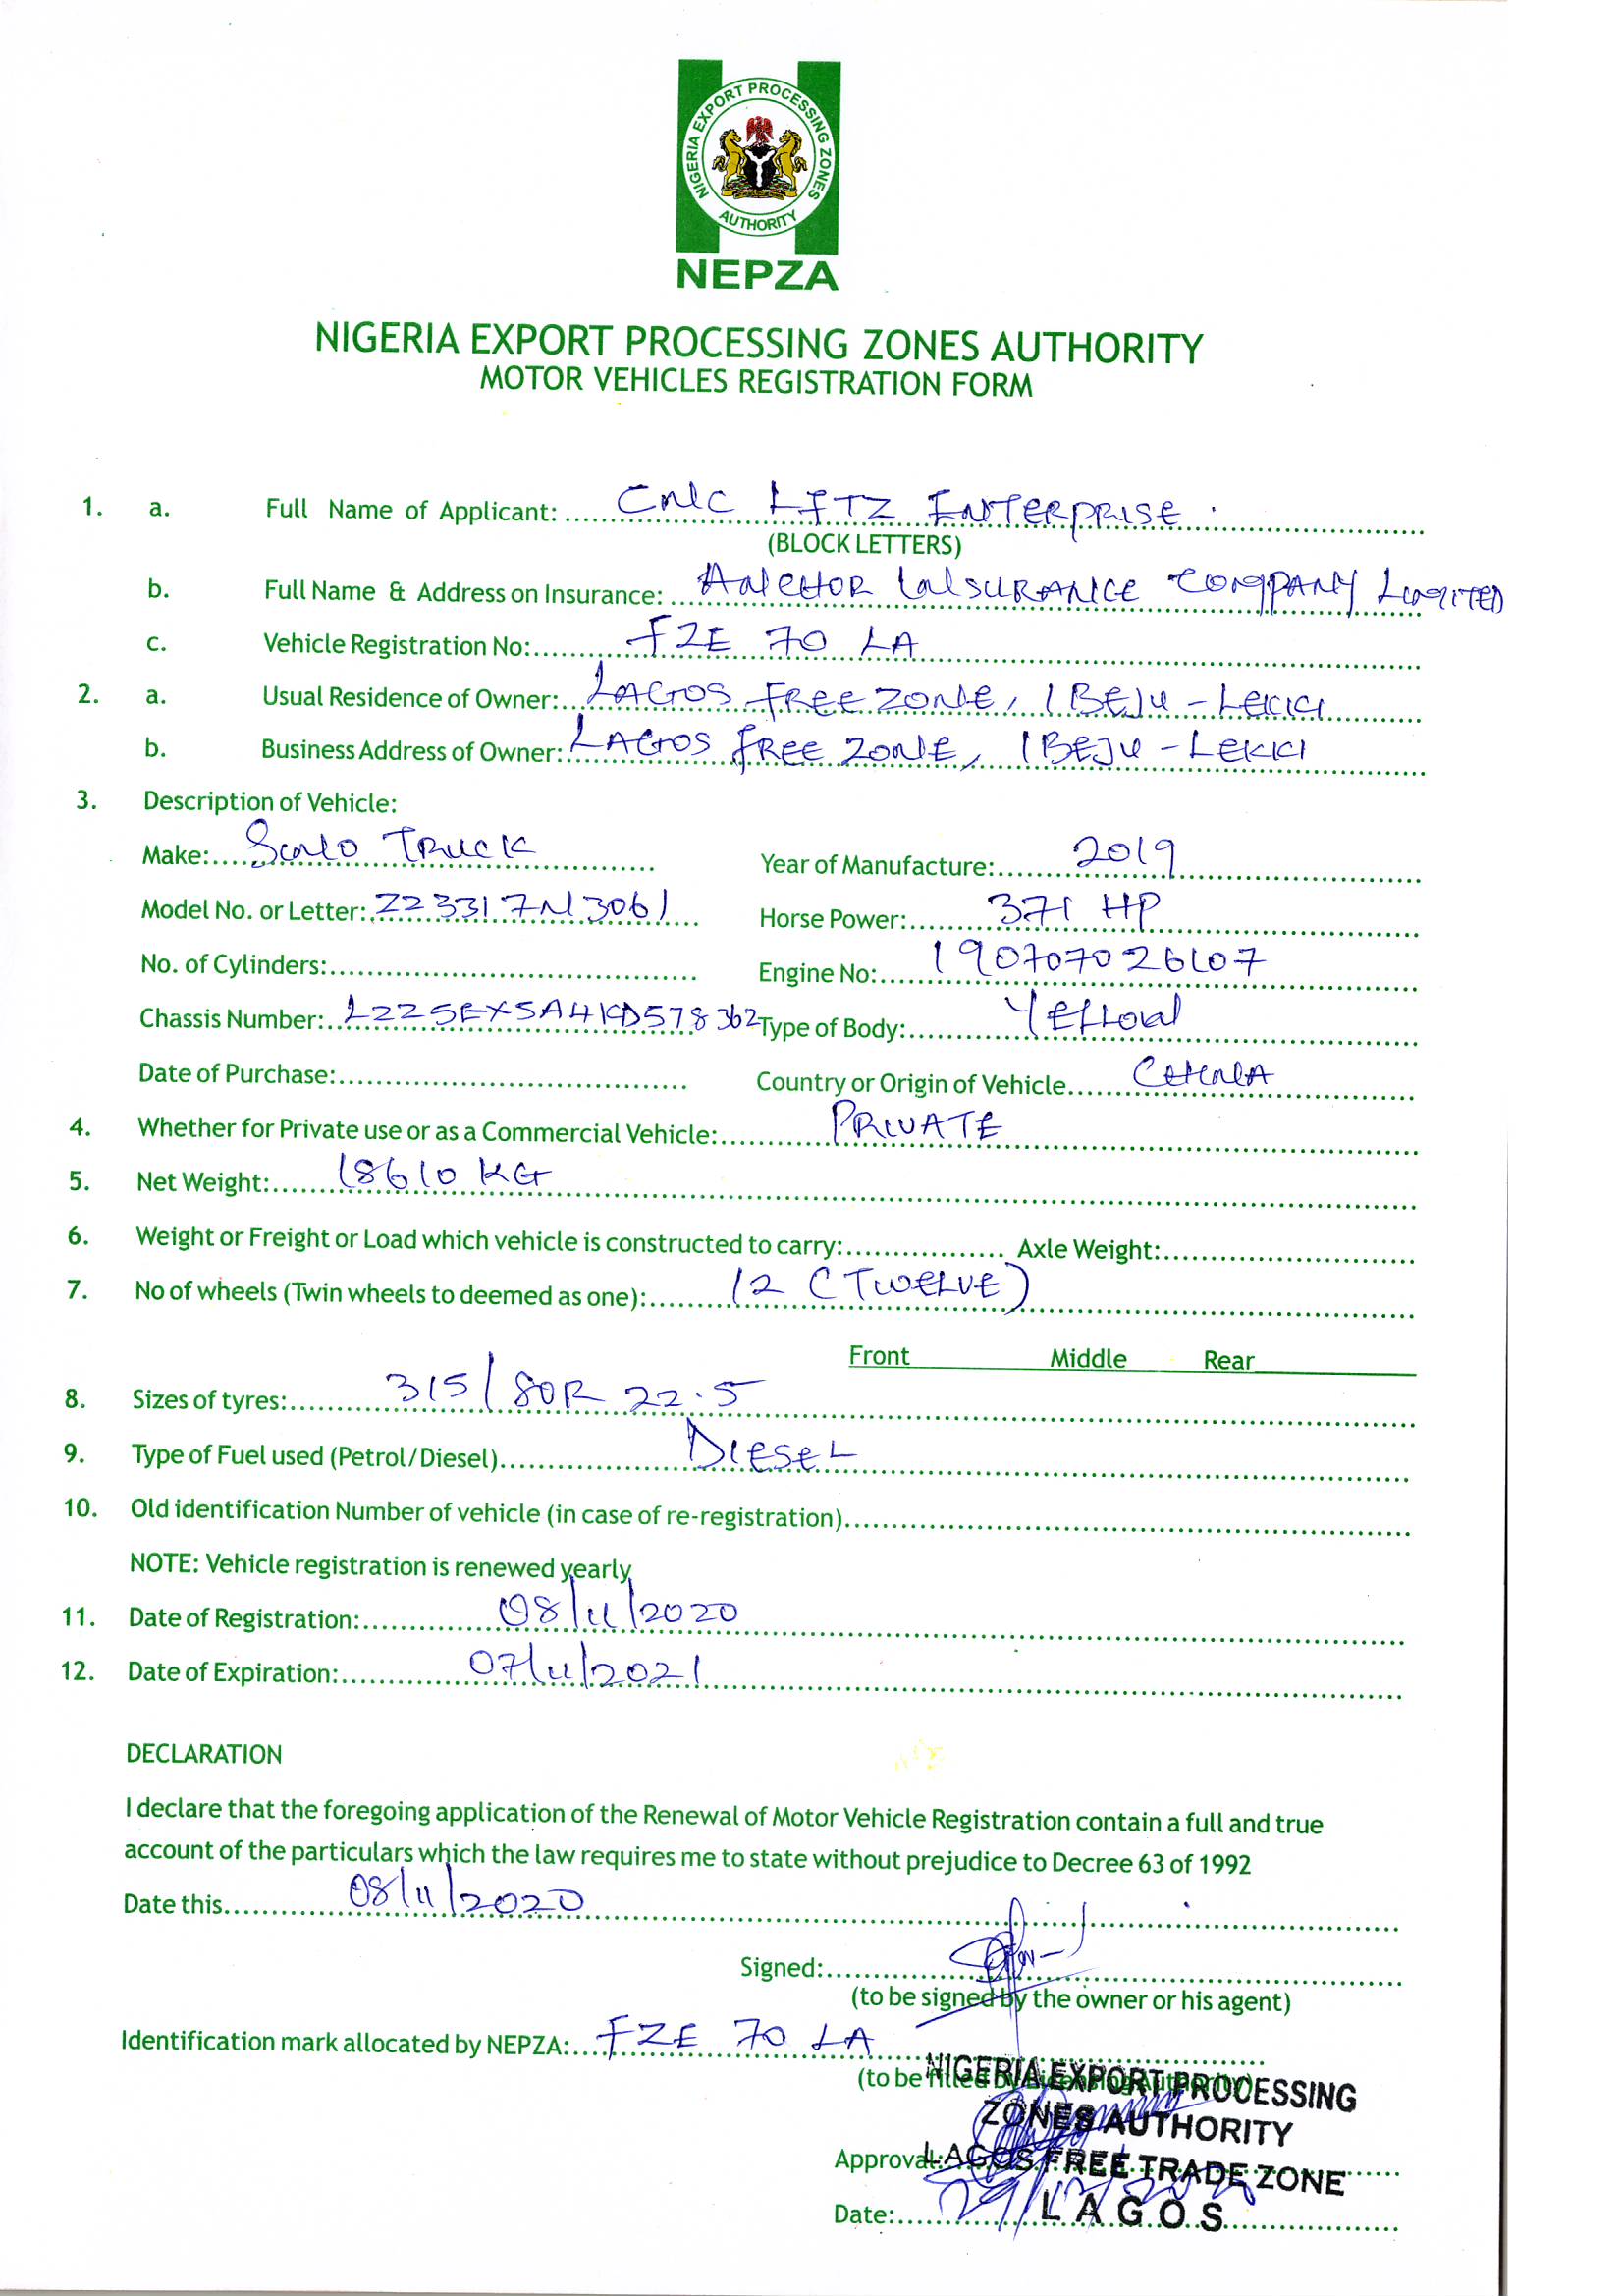 NIGERIA EXPORT PROCESSING ZONES
AUTHORITY
NEPZA
NIGERIA EXPORT PROCESSING ZONES AUTHORITY
MOTOR VEHICLES REGISTRATION FORM
1. a. Full Name of Applicant: CNLC LFTZ ENTERPRISE
(BLOCK LETTERS)
b. Full Name & Address on Insurance: ANCHOR INSURANCE COMPANY LIMITED
c. Vehicle Registration No: FZE 70 LA
2. a. Usual Residence of Owner: LAGOS FREE ZONE, IBEJU - LEKKI
b. Business Address of Owner: LAGOS FREE ZONE, IBEJU - LEKKI
3. Description of Vehicle:
Make: TRUCK Year of Manufacture: 2019
Model No. or Letter: ZZ3317N3061 Horse Power: 371 HP
No. of Cylinders: Engine No: 190707026107
Chassis Number: LZZ5EXSA4KD578362 Type of Body: YELLOW
Date of Purchase: Country or Origin of Vehicle CHINA
4. Whether for Private use or as a Commercial Vehicle: PRIVATE
5. Net Weight: 18610 KG
6. Weight or Freight or Load which vehicle is constructed to carry: Axle Weight:
7. No of wheels (Twin wheels to deemed as one): 12 (TWELVE)
Front Middle Rear
8. Sizes of tyres: 315/80R 22.5
9. Type of Fuel used (Petrol/Diesel) DIESEL
10. Old identification Number of vehicle (in case of re-registration)
NOTE: Vehicle registration is renewed yearly
11. Date of Registration: 08/11/2020
12. Date of Expiration: 07/11/2021
DECLARATION
I declare that the foregoing application of the Renewal of Motor Vehicle Registration contain a full and true
account of the particulars which the law requires me to state without prejudice to Decree 63 of 1992
Date this 08/11/2020
Signed:
(to be signed by the owner or his agent)
Identification mark allocated by NEPZA: FZE 70 LA
(to be filled by Licensing Authority)
NIGERIA EXPORT PROCESSING
ZONES AUTHORITY
Approval: LAGOS FREE TRADE ZONE
Date: LAGOS